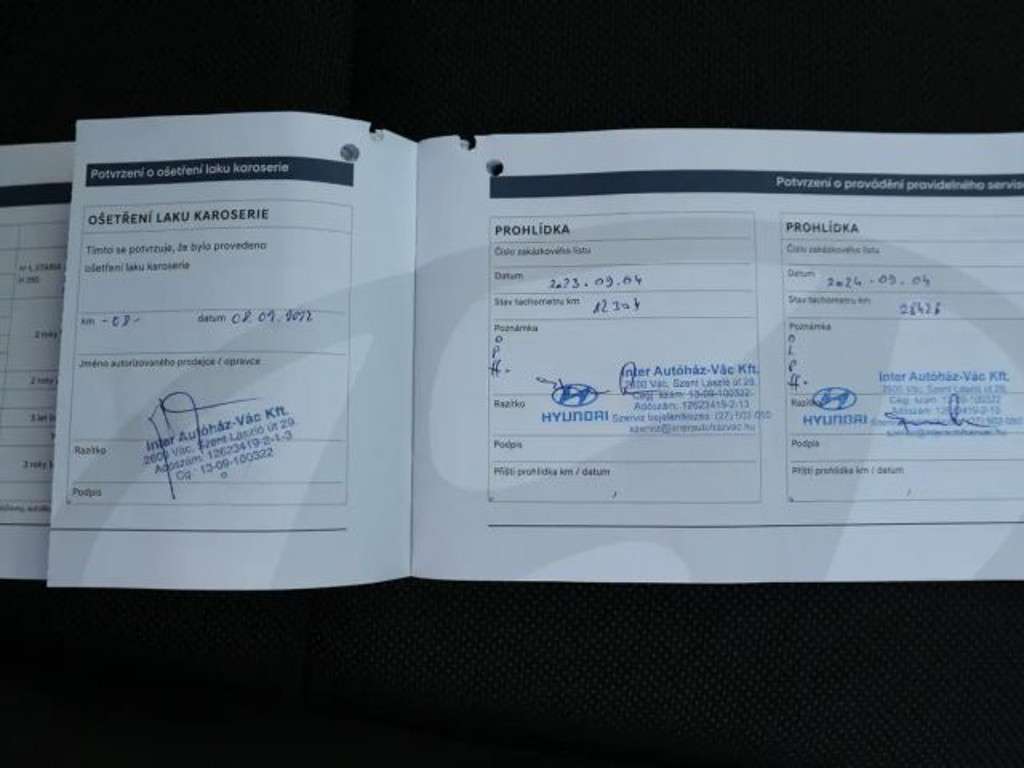 Potvrzení o ošetření laku karoserie
OŠETŘENÍ LAKU KAROSERIE
Tímto se potvrzuje, že bylo provedeno
ošetření laku karoserie
km
datum
Jméno autorizovaného prodejce / opravce
Inter Autóház-Vác Kft.
2600 Vác, Szent László út 29.
Adószám: 12623419-2-13
Cg.: 13-09-100322
Razítko
Podpis
2 roky
3 roky
Potvrzení o provádění pravidelného servisu
PROHLÍDKA
Číslo zakázkového listu
Datum 2023.09.04
Stav tachometru km 12304
Poznámka
O
P
Razítko
HYUNDAI
Inter Autóház-Vác Kft.
2600 Vác, Szent László út 29.
Cég. szám: 13-09-100322
Adószám: 12623419-2-13
Szerviz bejelentkezés: (27)
szerviz@interautohazvac.hu
Podpis
Příští prohlídka km / datum
PROHLÍDKA
Číslo zakázkového listu
Datum 2024.09.04
Stav tachometru km
Poznámka
O
L
P
Razítko
HYUNDAI
Inter Autóház-Vác Kft.
2600 Vác, Szent László út 29.
Cég. szám: 13-09-100322
Adószám: 12623419-2-13
Podpis
Příští prohlídka km / datum